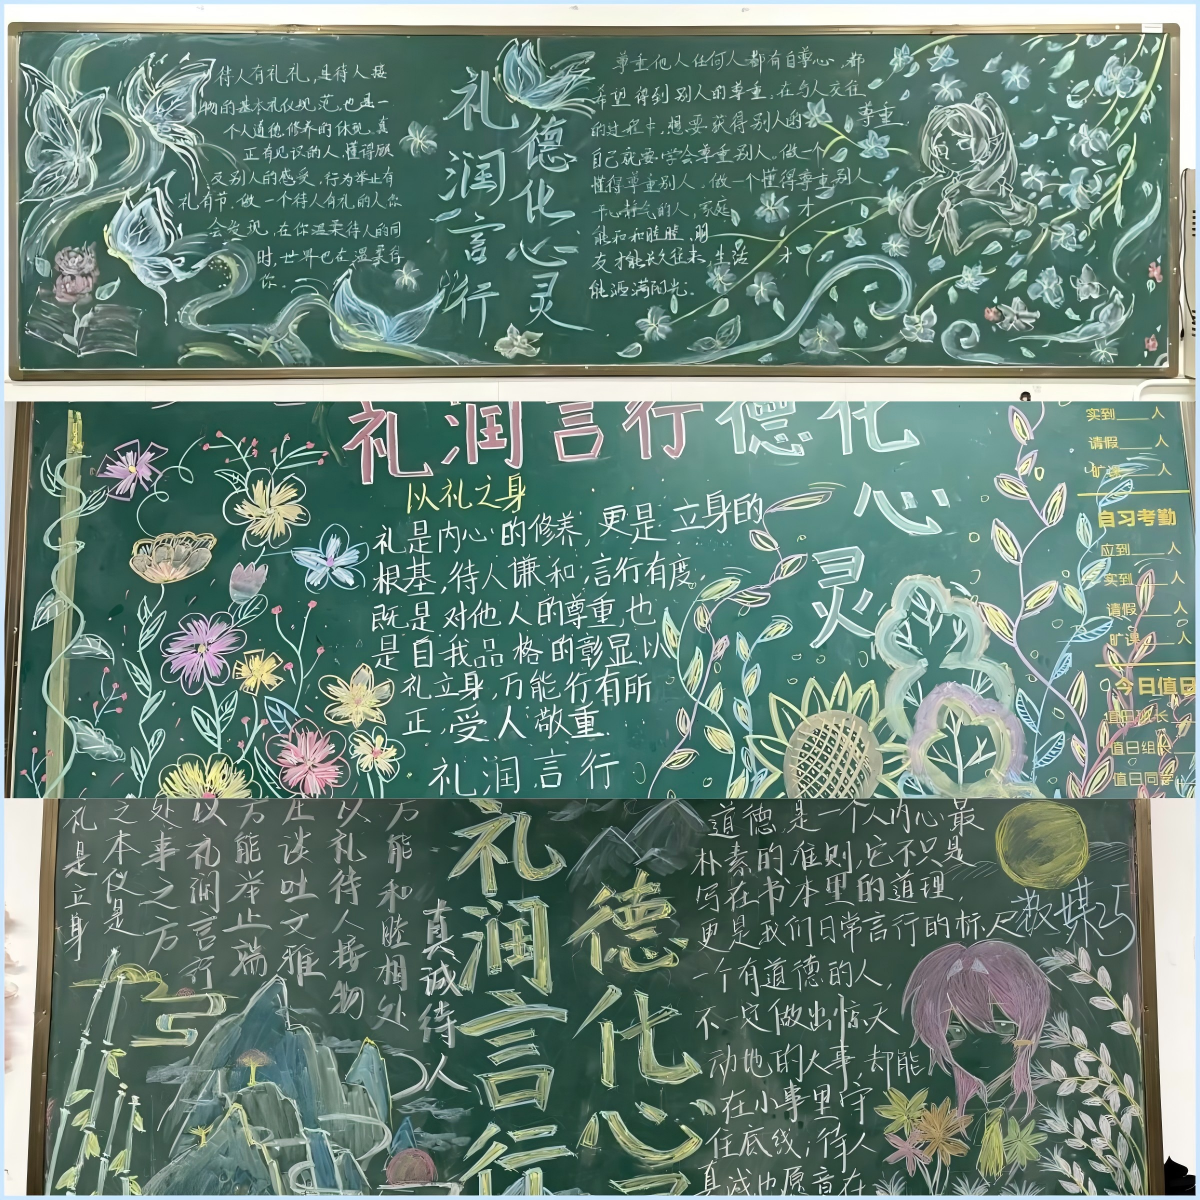 待人有礼礼,是待人接
物的基本礼仪规范,也是一
个人道德修养的体现,真
正有见识的人,懂得顾
及别人的感受,行为举止有
礼有节,做一个待人有礼的人你
会发现,在你温柔待人的同
时,世界也在温柔待
你。
礼润言行
德化心灵
尊重他人任何人都有自尊心,都
希望得到别人的尊重,在与人交往
的过程中,想要获得别人的尊重,
自己就要学会尊重别人。做一个
懂得尊重别人,做一个懂得尊重别人
平心静气的人,家庭才
能和和睦睦,朋
友才能长久往来,生活才
能洒满阳光。
礼润言行德化
心
灵
以礼之身
礼是内心的修养,更是立身的
根基,待人谦和,言行有度,
既是对他人的尊重,也
是自我品格的彰显,以
礼立身,方能行有所
正,受人敬重.
礼润言行
实到____人
请假____人
旷课____人
自习考勤
应到____人
实到____人
请假____人
旷课____人
今日值日
值日班长
值日组长
值日同学
礼是立身
之本仪是
处事之方
以礼润言行
方能举止端
庄谈吐文雅
以礼待人接物
方能和睦相处
真诚待人
礼润言行
德化心
道德是一个人内心最
朴素的准则,它不只是
写在书本里的道理,
更是我们日常言行的标尺
一个有道德的人,
不一定做出惊天
动地的大事,却能
在小事里守
住底线;待人
真诚也愿意在